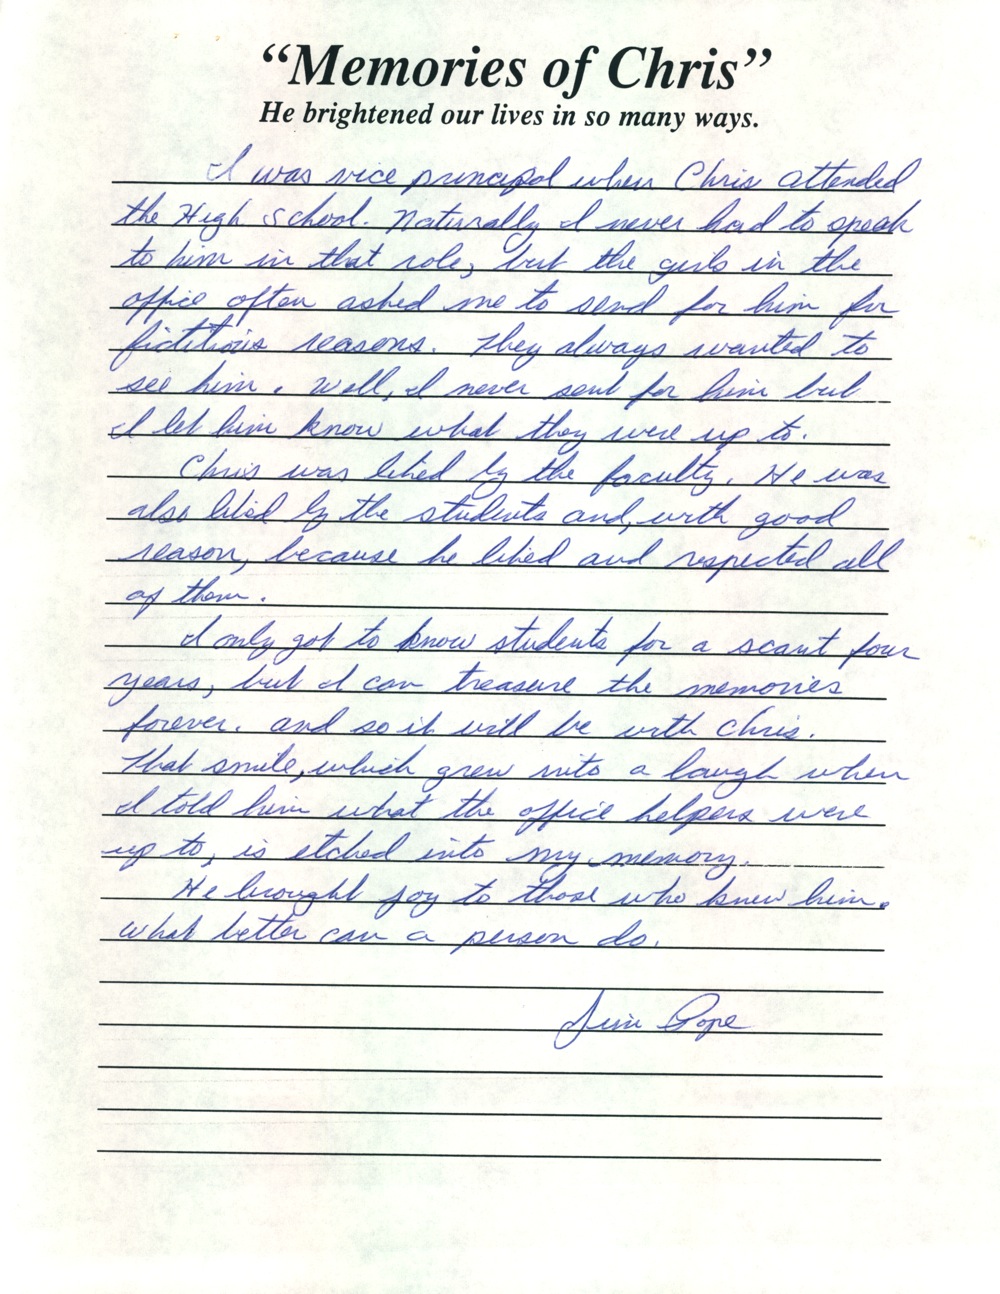 “Memories of Chris”
He brightened our lives in so many ways.
I was vice principal when Chris attended
the High School. Naturally I never had to speak
to him in that role, but the girls in the
office often asked me to send for him for
fictitious reasons. They always wanted to
see him. Well, I never sent for him but
I let him know what they were up to.
Chris was liked by the faculty. He was
also liked by the students and, with good
reason, because he liked and respected all
of them.
I only got to know students for a scant four
years, but I can treasure the memories
forever. and so it will be with Chris.
That smile, which grew into a laugh when
I told him what the office helpers were
up to, is etched into my memory.
He brought joy to those who knew him.
What better can a person do.
Jim Pope